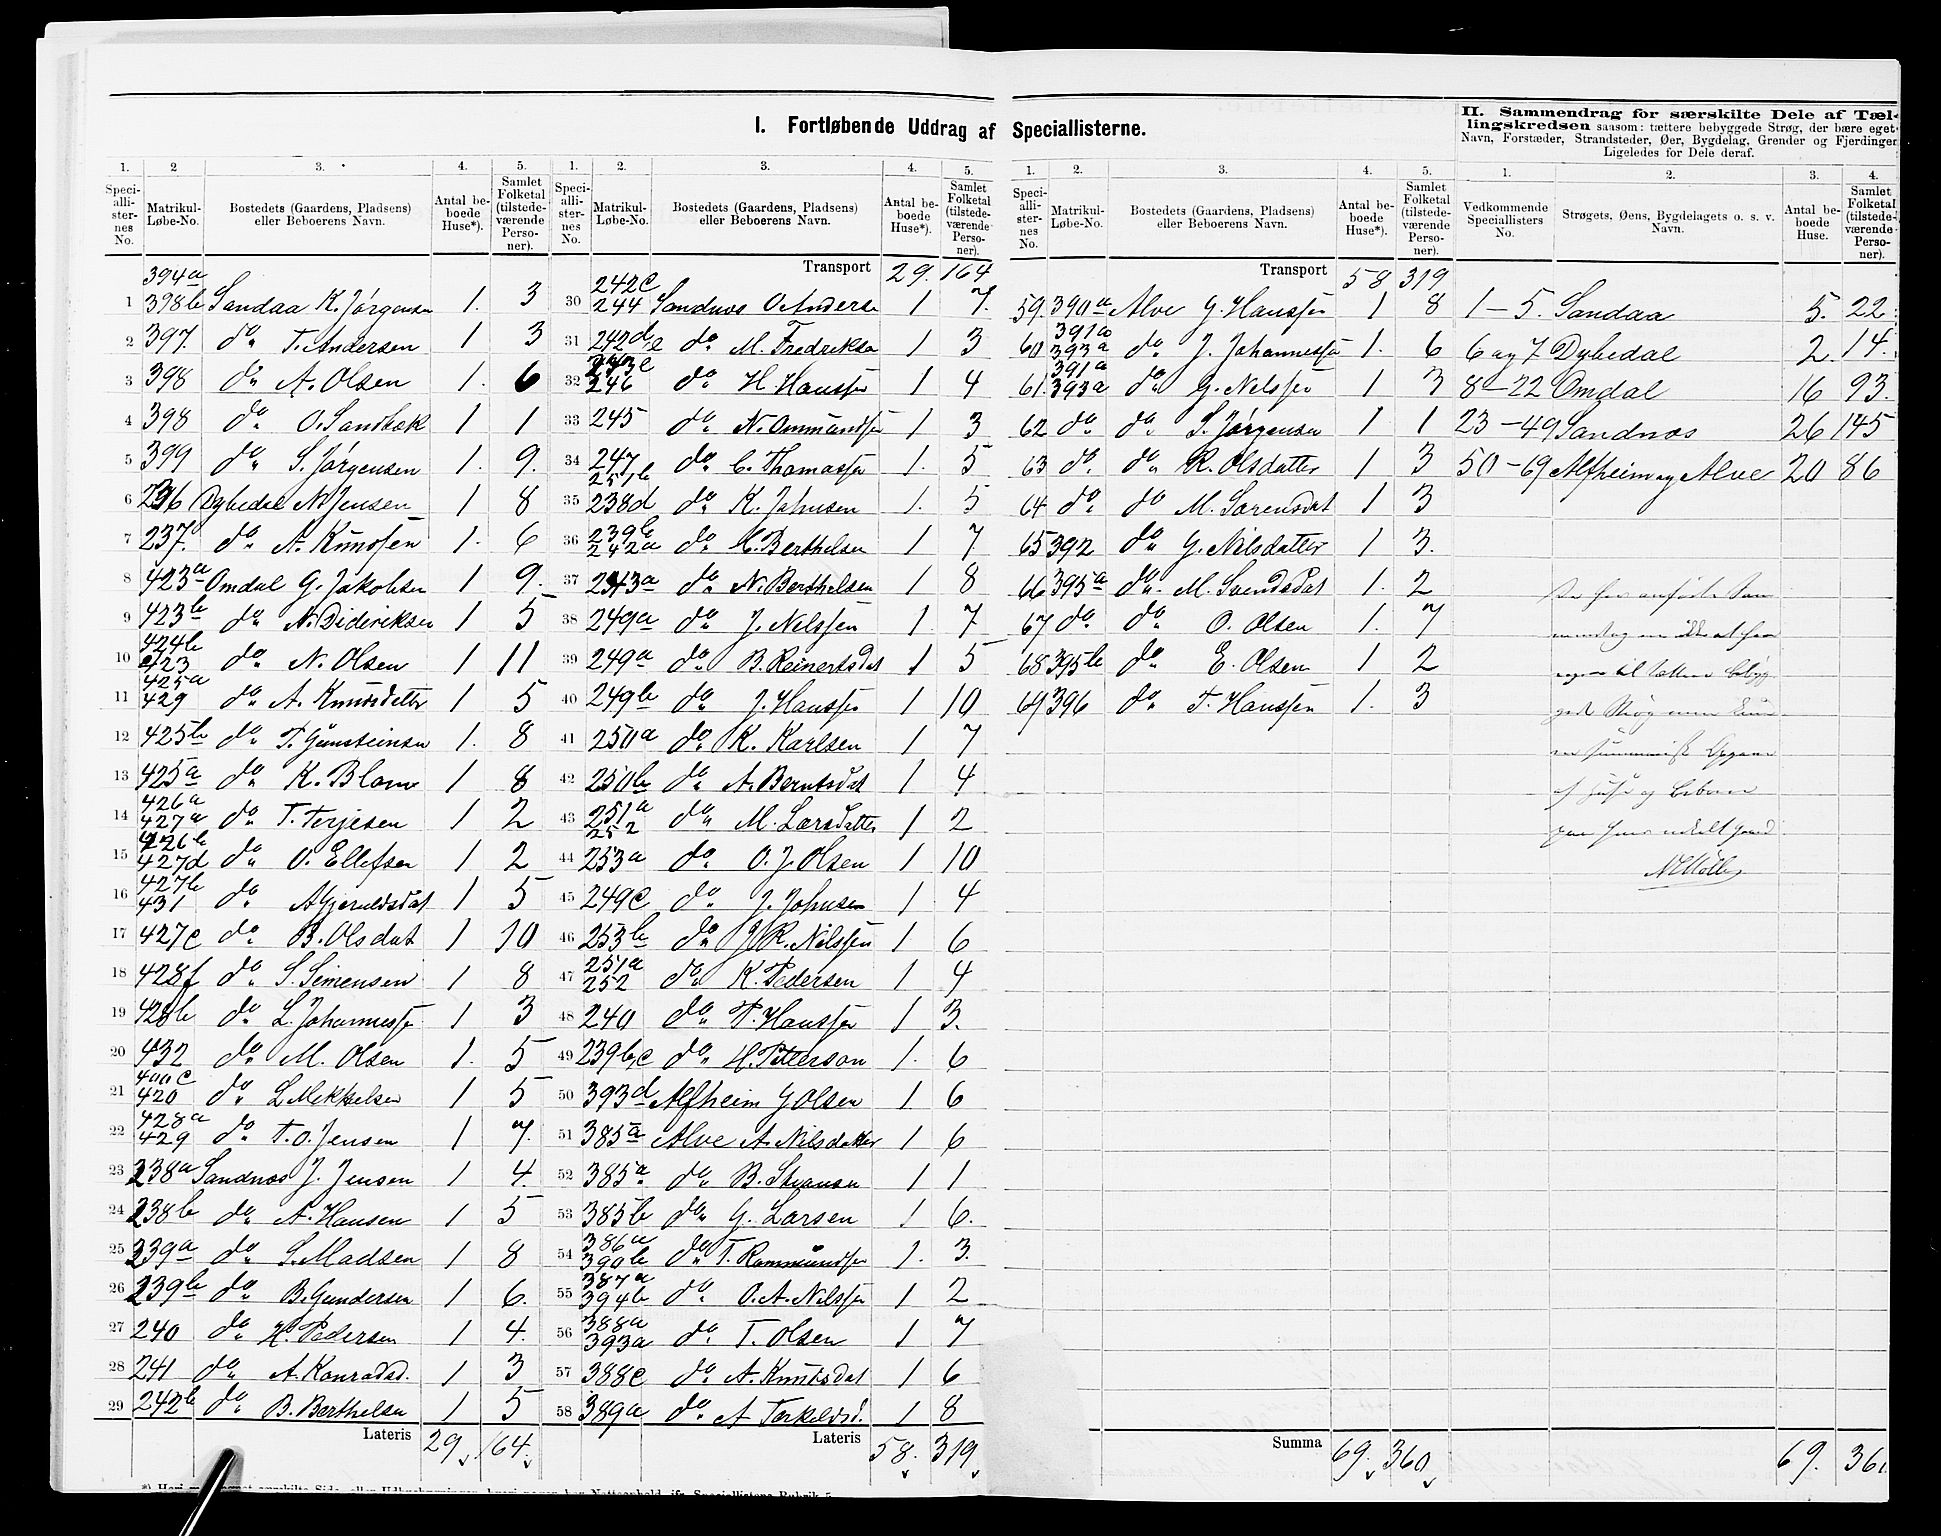 I. Fortløbende Uddrag af Speciallisterne.
II. Sammendrag for særskilte Dele af Tæl-
lingskredsen saasom: tættere bebyggede Strøg, der bære eget
Navn, Forstæder, Strandsteder, Øer, Bygdelag, Grender og Fjerdinger
Ligeledes for Dele deraf.
1. 2 3. 4. 5.
Speciallisternes No. Matrikul-Løbe-No. Bostedets (Gaardens, Pladsens) eller Beboerens Navn. Antal beboede Huse*). Samlet Folketal (tilstedeværende Personer).
394a
1 398b Sandaa K. Jørgensen 1. 3
2 397. do T. Andersen 1 3
3 398 do A. Olsen 1. 6
4 398 do O. Sandbæk 1 1
5 399 do S. Jørgensen 1. 9.
6 236 Dybedal N. Jensen 1 8
7 237. do A. Knudsen 1. 6
8 423a Omdal G. Jakobsen 1 9.
9 423b do N. Dideriksen 1 5
424b
10 423 do N. Olsen 1 11
425a
11 429 do A. Knudsdatter 1 5
12 425b do T. Gunsteinsen 1. 8
13 425a do K. Blom 1 8
426a
14 427a do T. Terjesen 1 2
426b
15 427d do O. Ellefsen 1 2
427b
16 431 do A Gjeruldsdat 1 5
17 427c do B. Olsdat 1 10
18 428f do S. Simensen 1 8
19 428b do L. Johannesse 1 3
20 432 do M. Olsen 1. 5
400c
21 420 do L Mikkelsen 1 5
428a
22 429 do T. O. Jensen 1 7.
23 238a Sandnæs J. Jensen 1 4.
24 238b do A. Hansen 1 5
25 239a do S. Madsen 1 8
26 239b do B. Gundersen 1 6.
27 240 do H. Pedersen 1 4.
28 241 do A. Konradsd. 1 3
29 242b do B. Berthelsen 1 5
Lateris 29. 164.
1. 2. 3. 4. 5.
Speciallisternes No. Matrikul-Løbe-No. Bostedets (Gaardens, Pladsens) eller Beboerens Navn. Antal beboede Huse*). Samlet Folketal (tilstedeværende Personer).
Transport 29. 164
242c
30 244 Sandnæs O Anderse 1 7.
31 242d,e do M. Fredrikse 1 3
243c
32 246 do H. Hansen 1 4
33 245 do N. Ommundsen 1 3
34 247 251b do C. Thomassen 1. 5
35 238d do K. Johnsen 1. 5
239b
36 242a do C. Berthelsen 1 7
37 243a do N. Berthelsen 1 8
38 249a do J. Nilssen 1. 7
39 249a do B. Reinertsdat 1 5
40 249b do J. Hanssen 1 10
41 250a do K. Karlsen 1 7
42 250b do A. Berntsdat 1 4
251a
43 252 do M. Larsdatter 1 2
44 253a do O. J. Olsen 1 10
45 249c do J. Johnsen 1 4
46 253b do J R. Nilssen 1 6
251a
47 252 do K. Pedersen 1 4
48 240 do P. Hanssen 1 3.
49 239b,c do H. Petterson 1. 6
50 393d Alfheim G Olsen 1 6
51 385a Alve A. Nilsdatter 1 6
52 385a do B. 1 1
53 385b do G. Larsen 1 6.
386a
54 390b do T. Rommundsen 1. 3.
387a
55 394b do O. A. Nilssen 1 2
388a
56 393a do T. Olsen 1 7
57 388c do A. Knutsdat 1 6
58 389a do A Torkeldsd. 1 8
Lateris 58. 319.
1. 2. 3. 4. 5.
Speciallisternes No. Matrikul-Løbe-No. Bostedets (Gaardens, Pladsens) eller Beboerens Navn. Antal beboede Huse*). Samlet Folketal (tilstedeværende Personer).
Transport 58 319
59. 390a Alve G. Hanssen 1 8
391a
60 393a do J. Johannessen 1. 6
391a
61. 393a do G. Nilssen 1 3
62 do do S. Jørgensen 1 1
63 do do R. Olsdatter 1 3
64 do do M. Sørensdat 1 3
65 392 do G. Nilsdatter 1 3.
66 395a do M. Svendsdat 1. 2
67 do do O. Olsen 1. 7
68 395b do E. Olsen 1 2
69 396 do T. Hanssen 1. 3
Summa 69. 360.
1. 2. 3. 4.
Vedkommende Speciallisters No. Strøgets, Øens, Bygdelagets o. s. v. Navn. Antal beboede Huse. Samlet Folketal (tilstedeværende Personer).
1-5. Sandaa 5. 22
6 og 7 Dybedal 2. 14.
8-22 Omdal 16 93.
23-49 Sandnæs 26 145
50-69 Alfheim og Alve 20 86
De her anførte Sam
til tættere bebyg
Strøg men kun
en summarisk Opgave
af Huse og Beboere
paa hver enkelt Gaard
69. 36